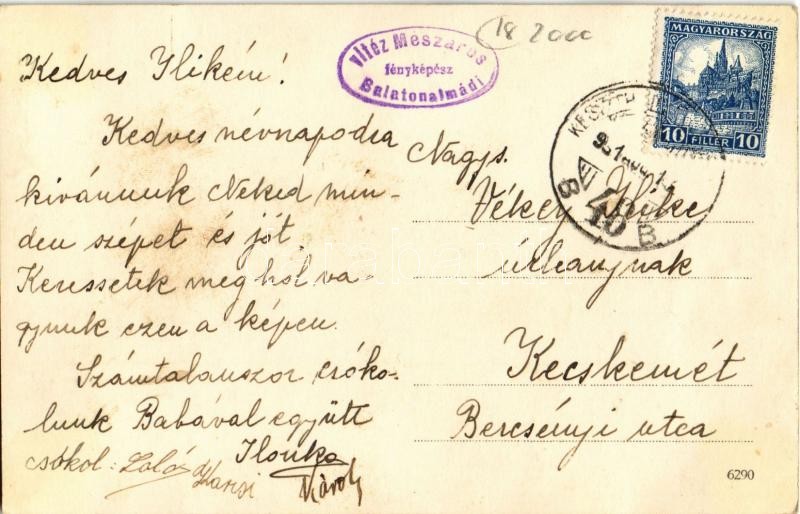 18 2000
Vitéz Mészáros
fényképész
Balatonalmádi
MAGYARORSZÁG
10 FILLÉR 10
B 40 B
Kedves Ilikém!
Kedves névnapodra
kívánunk Neked min-
den szépet és jót.
Keressetek meg hol va-
gyunk ezen a képen.
Számtalanszor csóko-
lunk Babával együtt
Ilonka
csókol:
Károly
Nagys.
Vékey Ilike
úrleánynak
Kecskemét
Bercsényi utca
6290